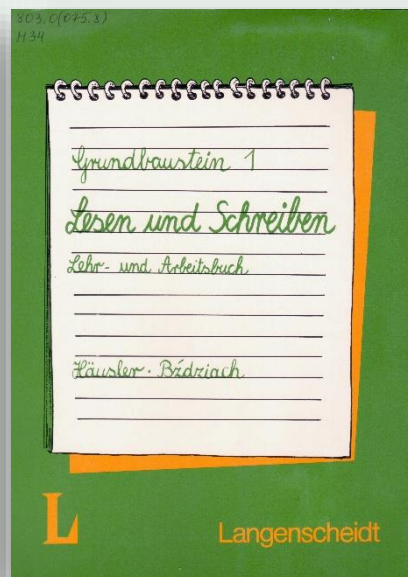 803.0(075.8)
M34
Grundbaustein 1
Lesen und Schreiben
Lehr- und Arbeitsbuch
Häusler · Bździach
L
Langenscheidt